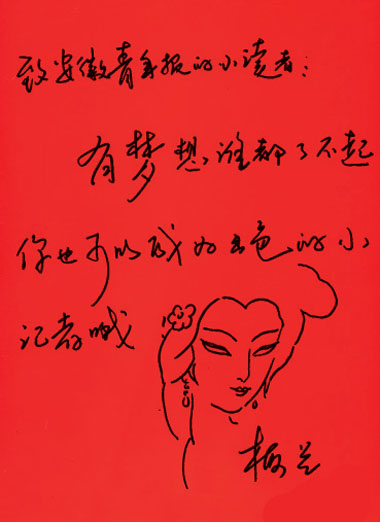 致安徽青年报的小读者:
有梦想谁都了不起
你也可以成为出色的小
记者哦